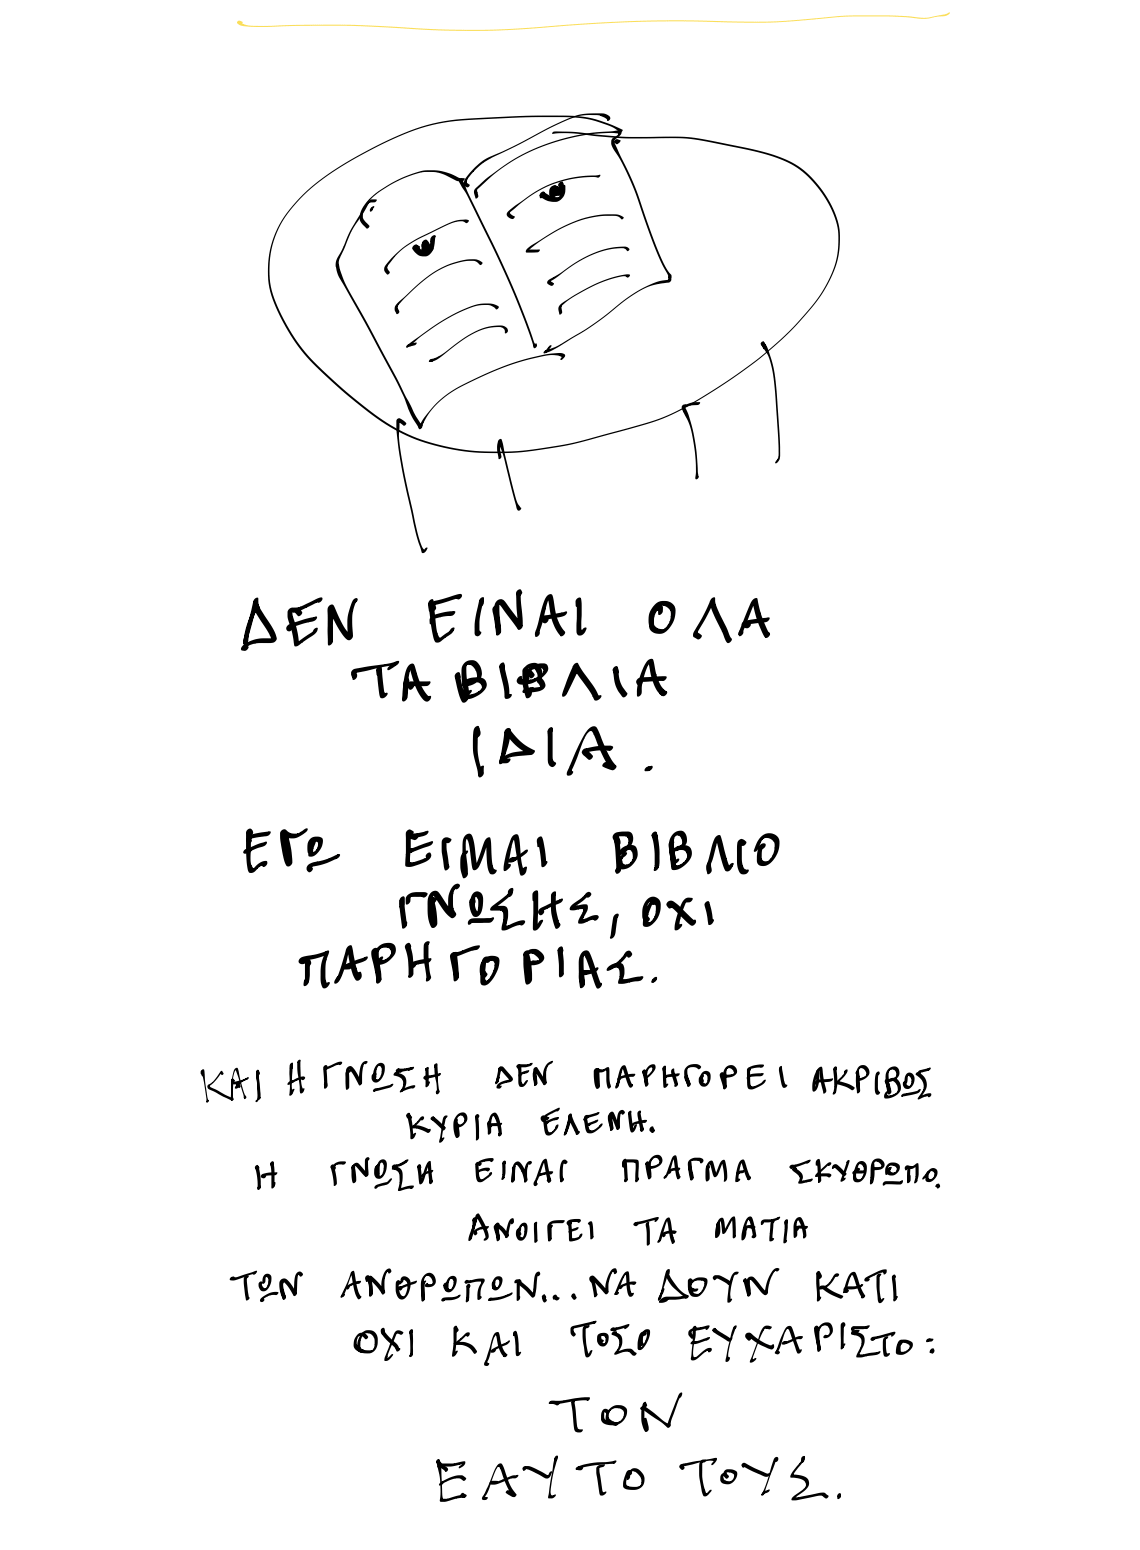 ΔΕΝ ΕΙΝΑΙ ΟΛΑ
ΤΑ ΒΙΒΛΙΑ
ΙΔΙΑ.
ΕΓΩ ΕΙΜΑΙ ΒΙΒΛΙΟ
ΓΝΩΣΗΣ, ΟΧΙ
ΠΑΡΗΓΟΡΙΑΣ.
ΚΑΙ Η ΓΝΩΣΗ ΔΕΝ ΠΑΡΗΓΟΡΕΙ ΑΚΡΙΒΩΣ
ΚΥΡΙΑ ΕΛΕΝΗ.
Η ΓΝΩΣΗ ΕΙΝΑΙ ΠΡΑΓΜΑ ΣΚΥΘΡΩΠΟ.
ΑΝΟΙΓΕΙ ΤΑ ΜΑΤΙΑ
ΤΩΝ ΑΝΘΡΩΠΩΝ... ΝΑ ΔΟΥΝ ΚΑΤΙ
ΟΧΙ ΚΑΙ ΤΟΣΟ ΕΥΧΑΡΙΣΤΟ:
ΤΟΝ
ΕΑΥΤΟ ΤΟΥΣ.